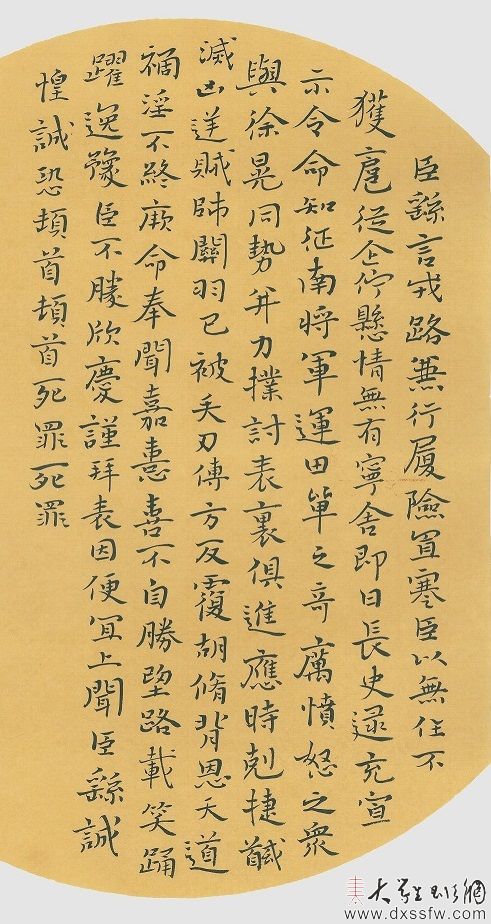 臣繇言戎路兼行履險冒寒臣以無任不
獲扈從企佇懸情無有寧舍即日長史逯充宣
示令命知征南將軍運田單之奇厲憤怒之衆
與徐晃同勢并力撲討表裏俱進應時剋捷馘
滅凶逆賊帥關羽已被矢刃傅方反覆胡脩背恩天道
禍淫不終厥命奉聞嘉憙喜不自勝望路載笑踊
躍逸豫臣不勝欣慶謹拜表因便宜上聞臣繇誠
惶誠恐頓首頓首死罪死罪
大學生書法網
www.dxssfw.com